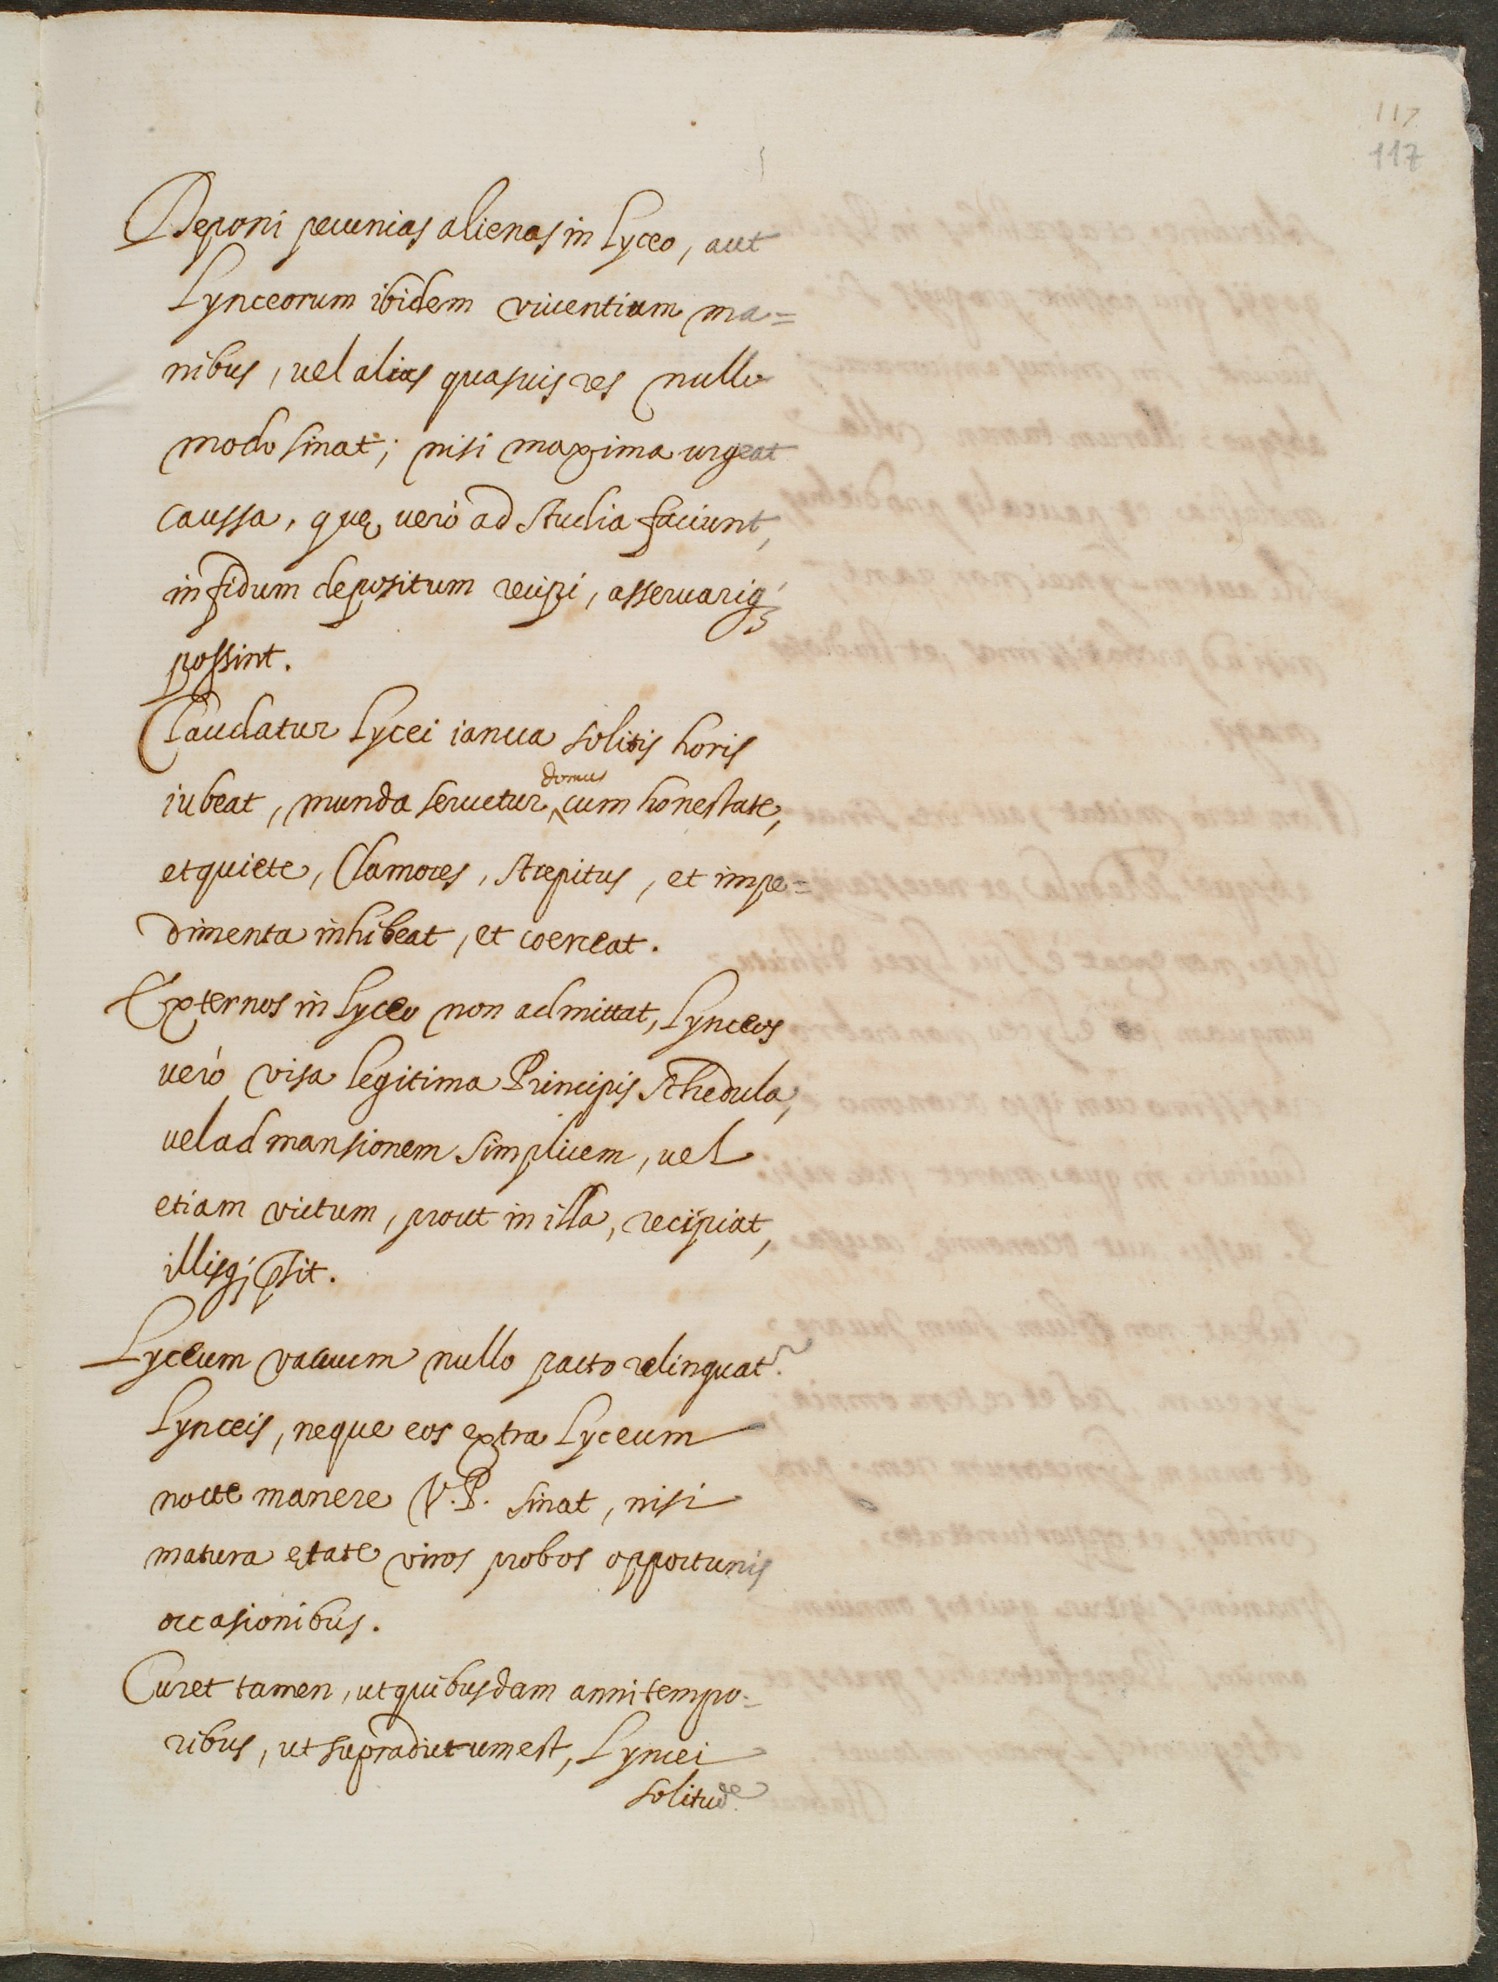 117
117
Deponi pecunias alienas in Lyceo, aut
Lynceorum ibidem viuentium ma=
nibus, uel alias quasuis res nullo
modo sinat; nisi maxima urgeat
caussa, quę uerò ad studia faciunt,
in fidum depositum recipi, asseruariq;
possint.
Claudatur Lycei ianua solitis horis
iubeat, munda seruetur domus cum honestate,
et quiete, Clamores, strepitus, et impe=
dimenta inhibeat, et coerceat.
Externos in Lyceo non admittat, Lynceos
uerò visa legitima Principis schedula,
uel ad mansionem simplicem, uel
etiam victum, prout in illa, recipiat,
illisq; ꝓsit.
Lyceum vacuum nullo pacto relinquat.r
Lynceis, neque eos extra Lyceum
nocte manere V.P. sinat, nisi
matura ętate viros probos opportunis
occasionibus.
Curet tamen, ut quibusdam anni tempo=
ribus, ut supradictum est, Lyncei
solitude.